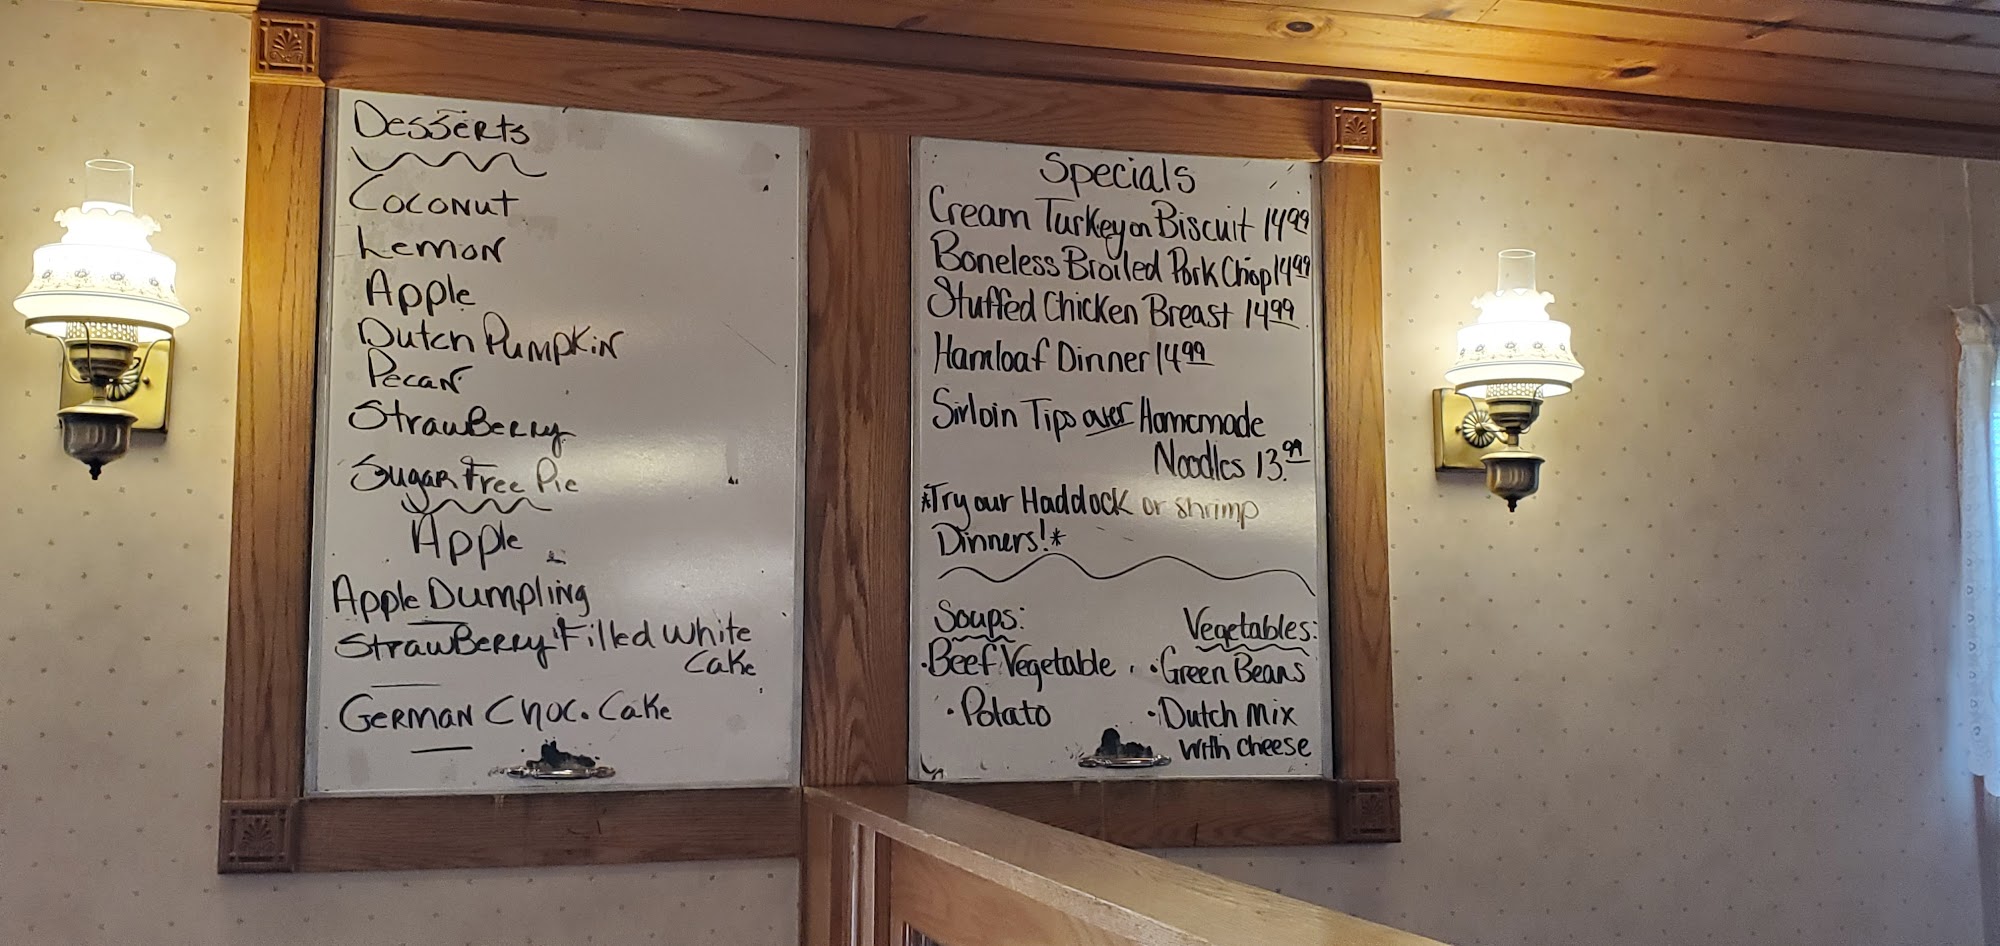 Desserts
Coconut
Lemon
Apple
Dutch Pumpkin
Pecan
Strawberry
Sugar Free Pie
Apple
Apple Dumpling
Strawberry Filled White
Cake
German Choc. Cake
Specials
Cream Turkey on Biscuit 14.99
Boneless Broiled Pork Chop 14.99
Stuffed Chicken Breast 14.99
Hamloaf Dinner 14.99
Sirloin Tips over Homemade
Noodles 13.99
*Try our Haddock or shrimp
Dinners!*
Soups:
• Beef Vegetable
• Potato
Vegetables:
• Green Beans
• Dutch Mix
with cheese